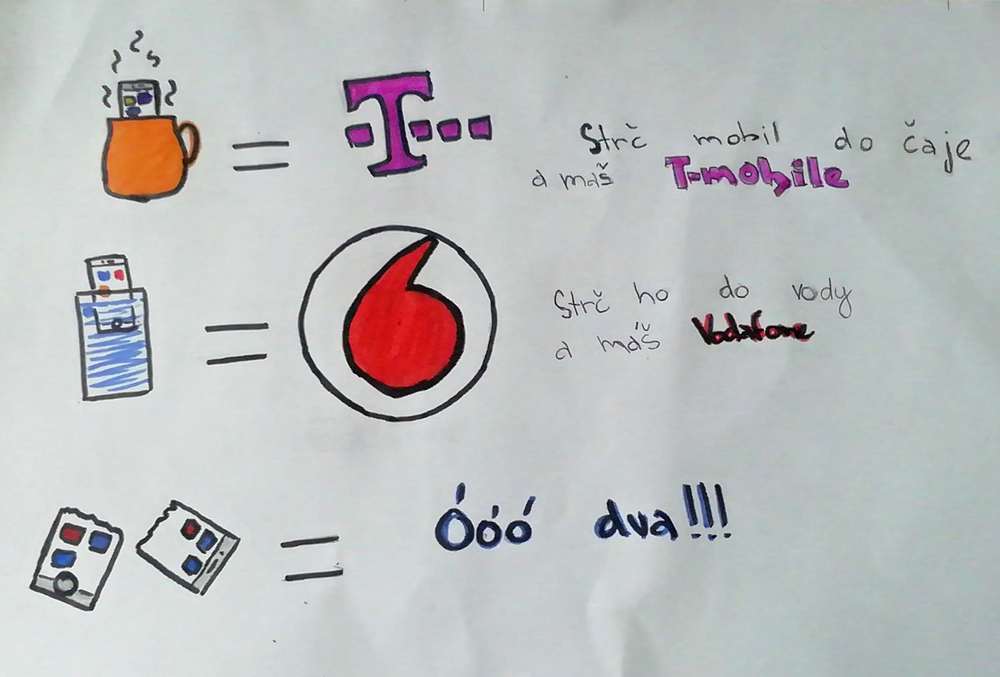 T
Strč mobil do čaje
a máš T-mobile
Strč ho do vody
a máš Vodafone
Óóó dva!!!